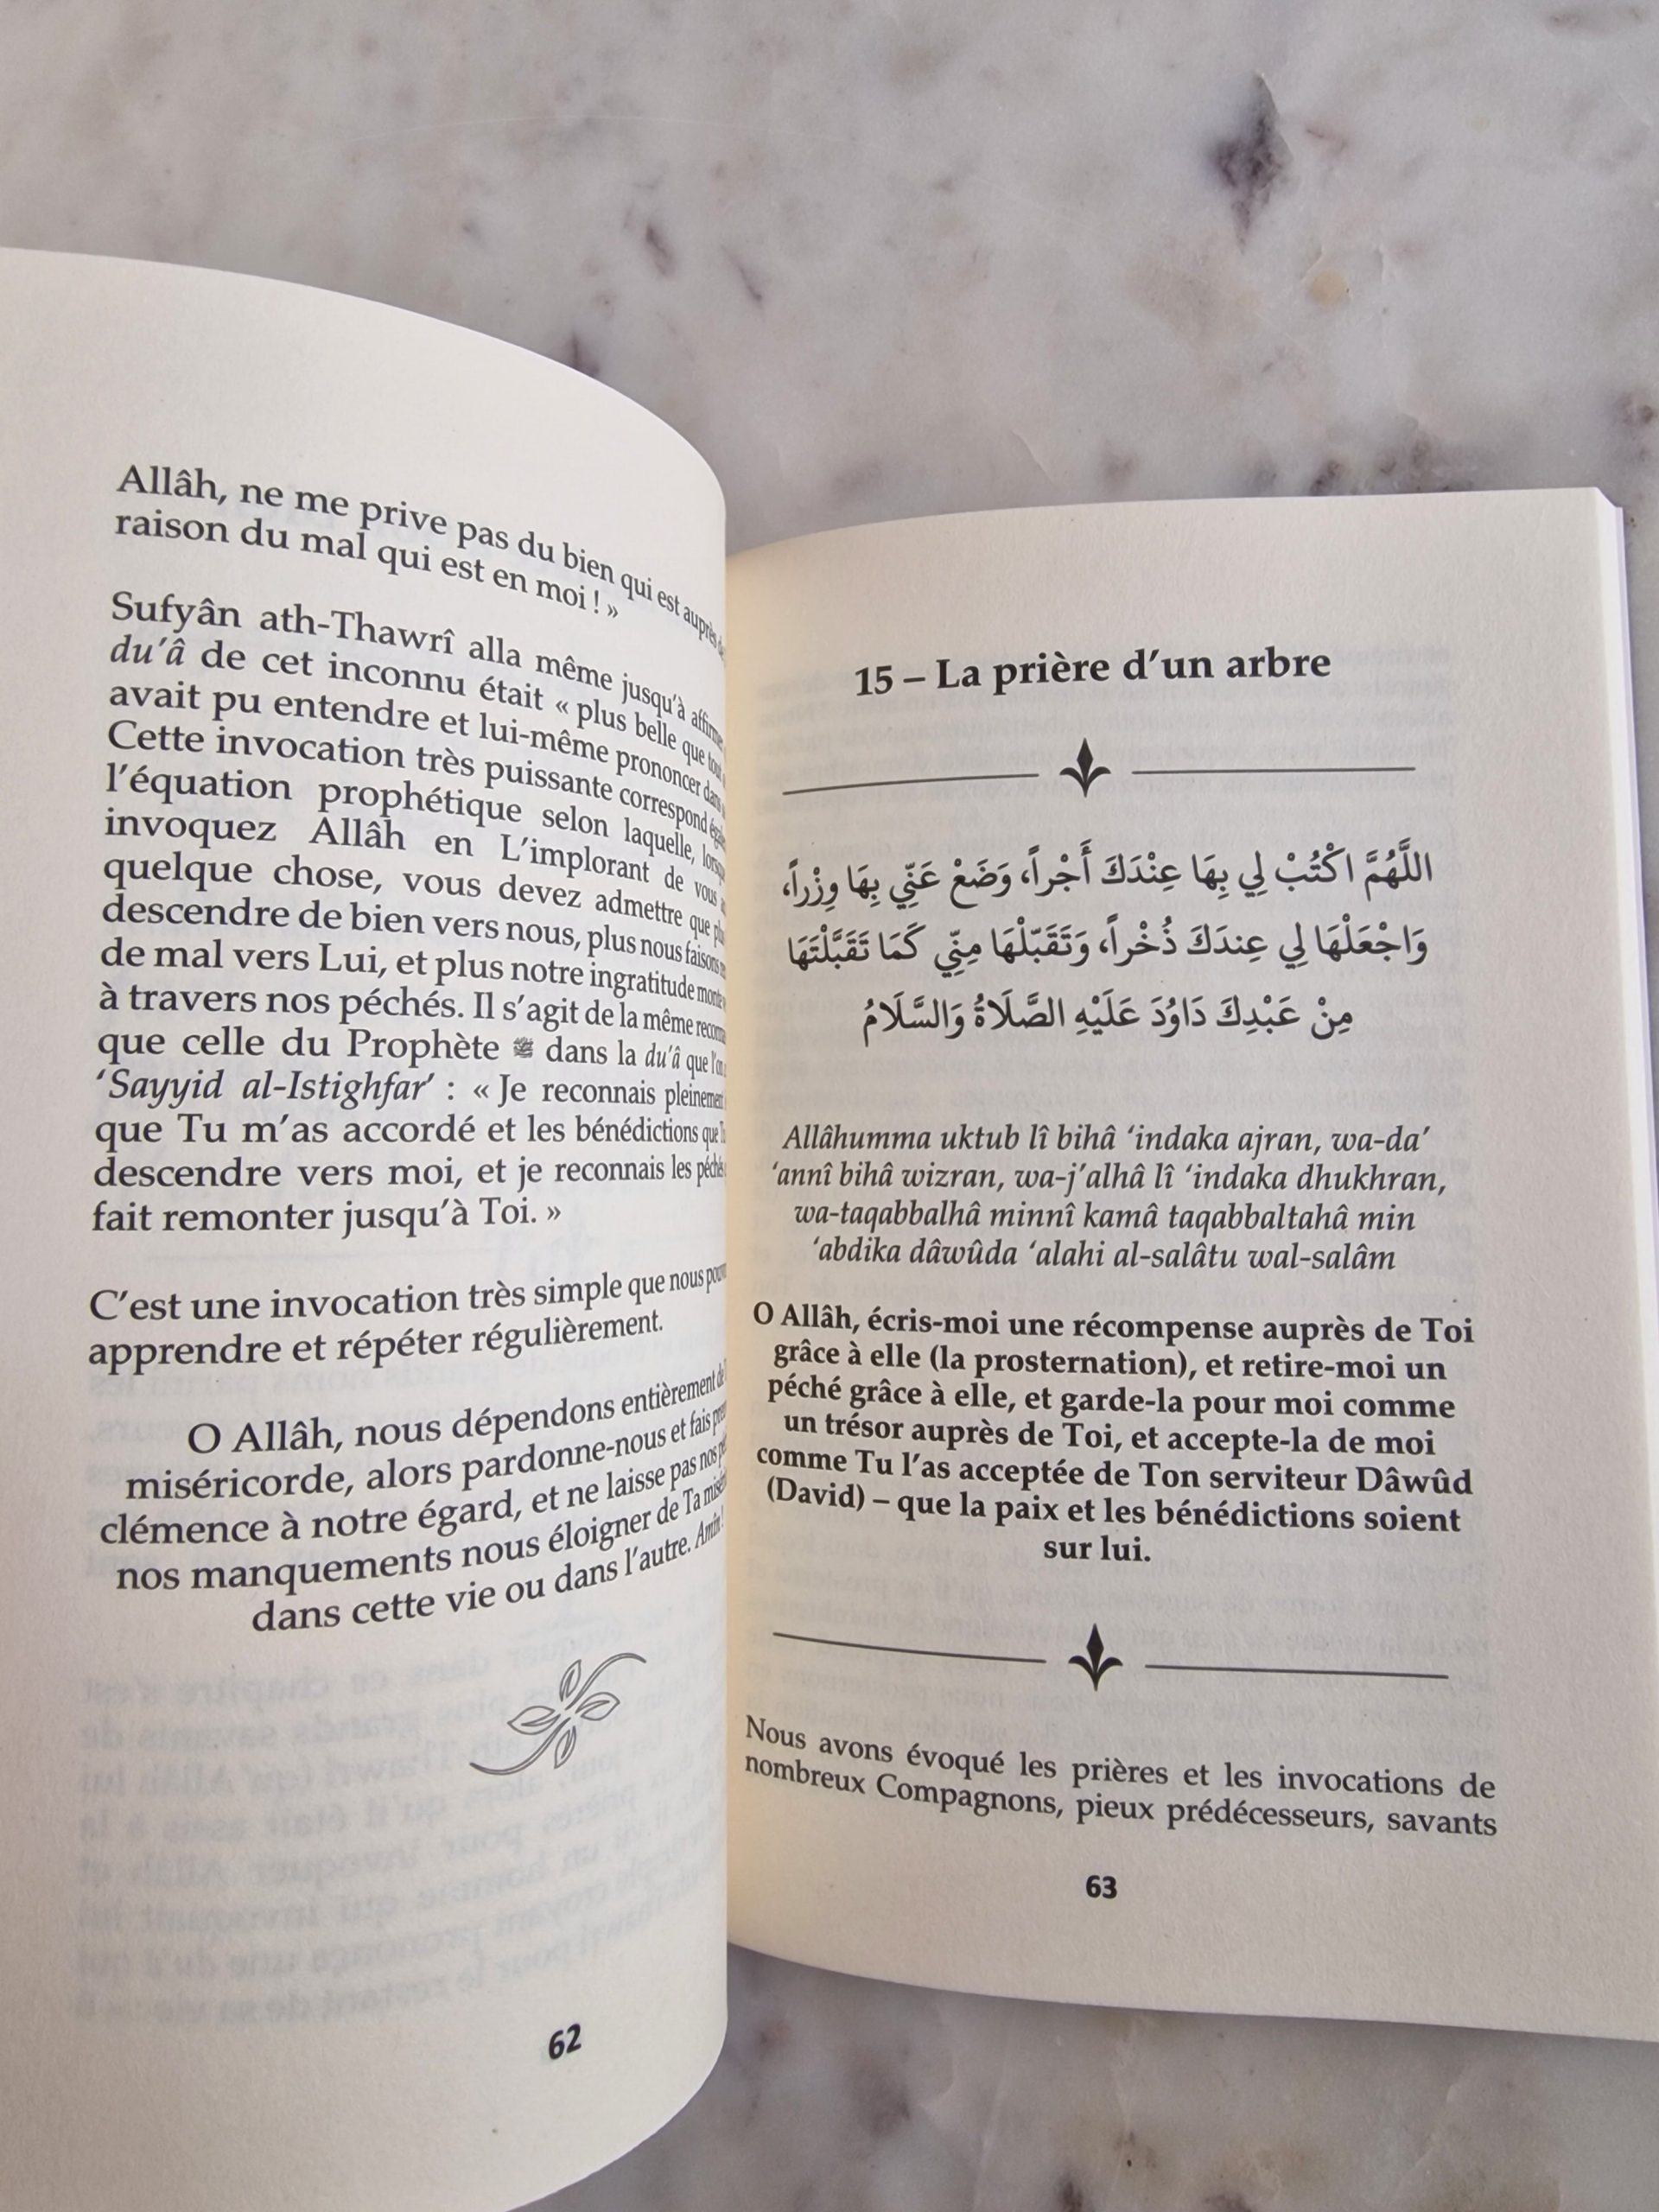 Allâh, ne me prive pas du bien qui est auprès de
raison du mal qui est en moi ! »
Sufyân ath-Thawrî alla même jusqu'à
du'â de cet inconnu était « plus belle que
avait pu entendre et lui-même prononcer dans
Cette invocation très puissante correspond
l'équation prophétique selon laquelle,
invoquez Allâh en L'implorant de vous
quelque chose, vous devez admettre que
descendre de bien vers nous, plus nous faisons
de mal vers Lui, et plus notre ingratitude
à travers nos péchés. Il s'agit de la même
que celle du Prophète ﷺ dans la du'â que
'Sayyid al-Istighfar' : « Je reconnais pleinement
que Tu m'as accordé et les bénédictions que
descendre vers moi, et je reconnais les
fait remonter jusqu'à Toi. »
C'est une invocation très simple que nous
apprendre et répéter régulièrement.
O Allâh, nous dépendons entièrement de
miséricorde, alors pardonne-nous et fais
clémence à notre égard, et ne laisse pas nos
nos manquements nous éloigner de Ta
dans cette vie ou dans l'autre. Amin !
62
15 – La prière d'un arbre
اللَّهُمَّ اكْتُبْ لِي بِهَا عِنْدَكَ أَجْراً، وَضَعْ عَنِّي بِهَا وِزْراً،
وَاجْعَلْهَا لِي عِندَكَ ذُخْراً، وَتَقَبّلْهَا مِنِّي كَمَا تَقَبَّلْتَهَا
مِنْ عَبْدِكَ دَاوُدَ عَلَيْهِ الصَّلَاةُ وَالسَّلَامُ
Allâhumma uktub lî bihâ 'indaka ajran, wa-da'
'annî bihâ wizran, wa-j'alhâ lî 'indaka dhukhran,
wa-taqabbalhâ minnî kamâ taqabbaltahâ min
'abdika dâwûda 'alahi al-salâtu wal-salâm
O Allâh, écris-moi une récompense auprès de Toi
grâce à elle (la prosternation), et retire-moi un
péché grâce à elle, et garde-la pour moi comme
un trésor auprès de Toi, et accepte-la de moi
comme Tu l'as acceptée de Ton serviteur Dâwûd
(David) – que la paix et les bénédictions soient
sur lui.
Nous avons évoqué les prières et les invocations de
nombreux Compagnons, pieux prédécesseurs, savants
63